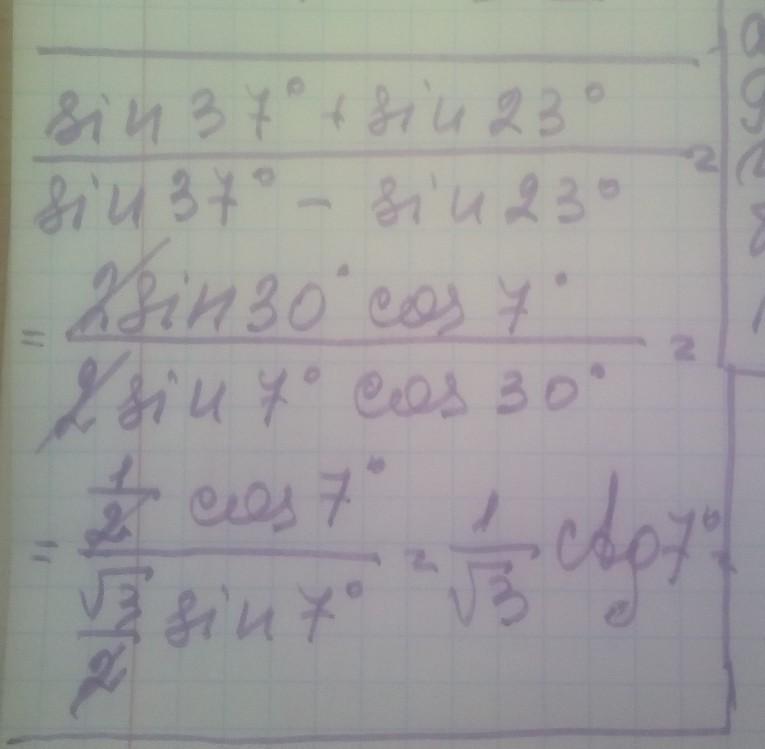 sin 37° + sin 23°
sin 37° - sin 23° =
= 2 sin 30° cos 7°
2 sin 7° cos 30° =
= 1/2 cos 7°
√3/2 sin 7° = 1/√3 ctg 7°